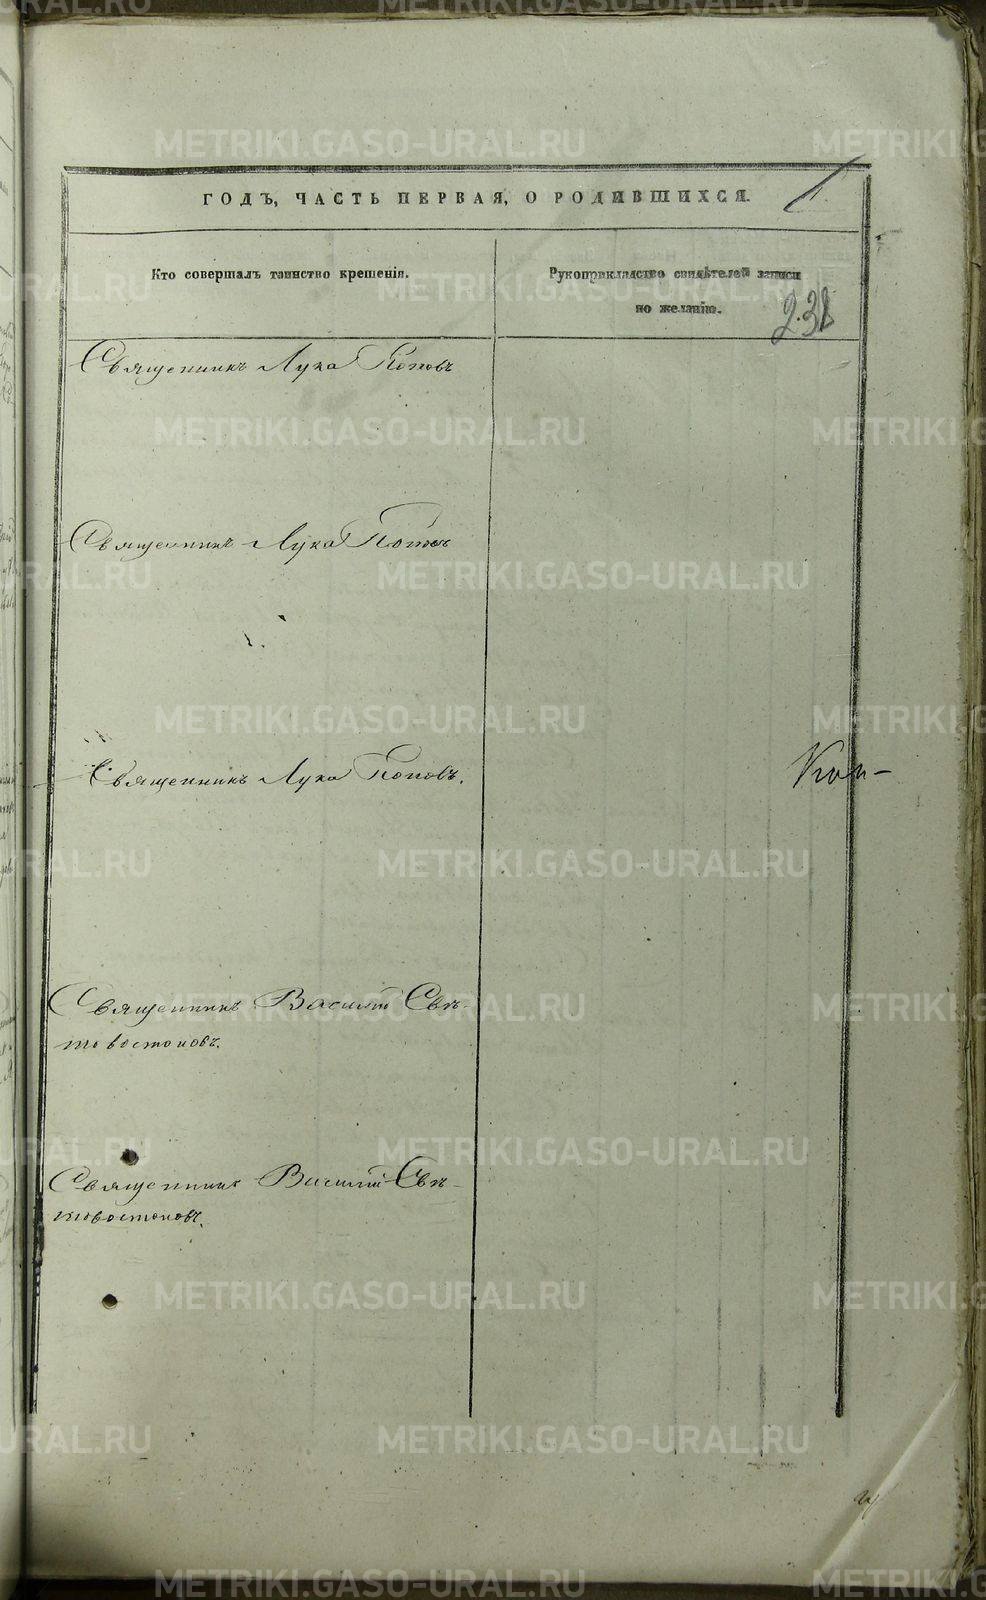 ГОДЪ, ЧАСТЬ ПЕРВАЯ, О РОДИВШИХСЯ.
Кто совершалъ таинство крещенія.
Рукоприкладство свидѣтелей записи
по желанію.
238
Священникъ Лука Поповъ
Священникъ Лука Поповъ
Священникъ Лука Поповъ.
Священникъ Василій Свѣ-
товостоковъ.
Священникъ Василій Свѣ-
товостоковъ.
METRIKI.GASO-URAL.RU